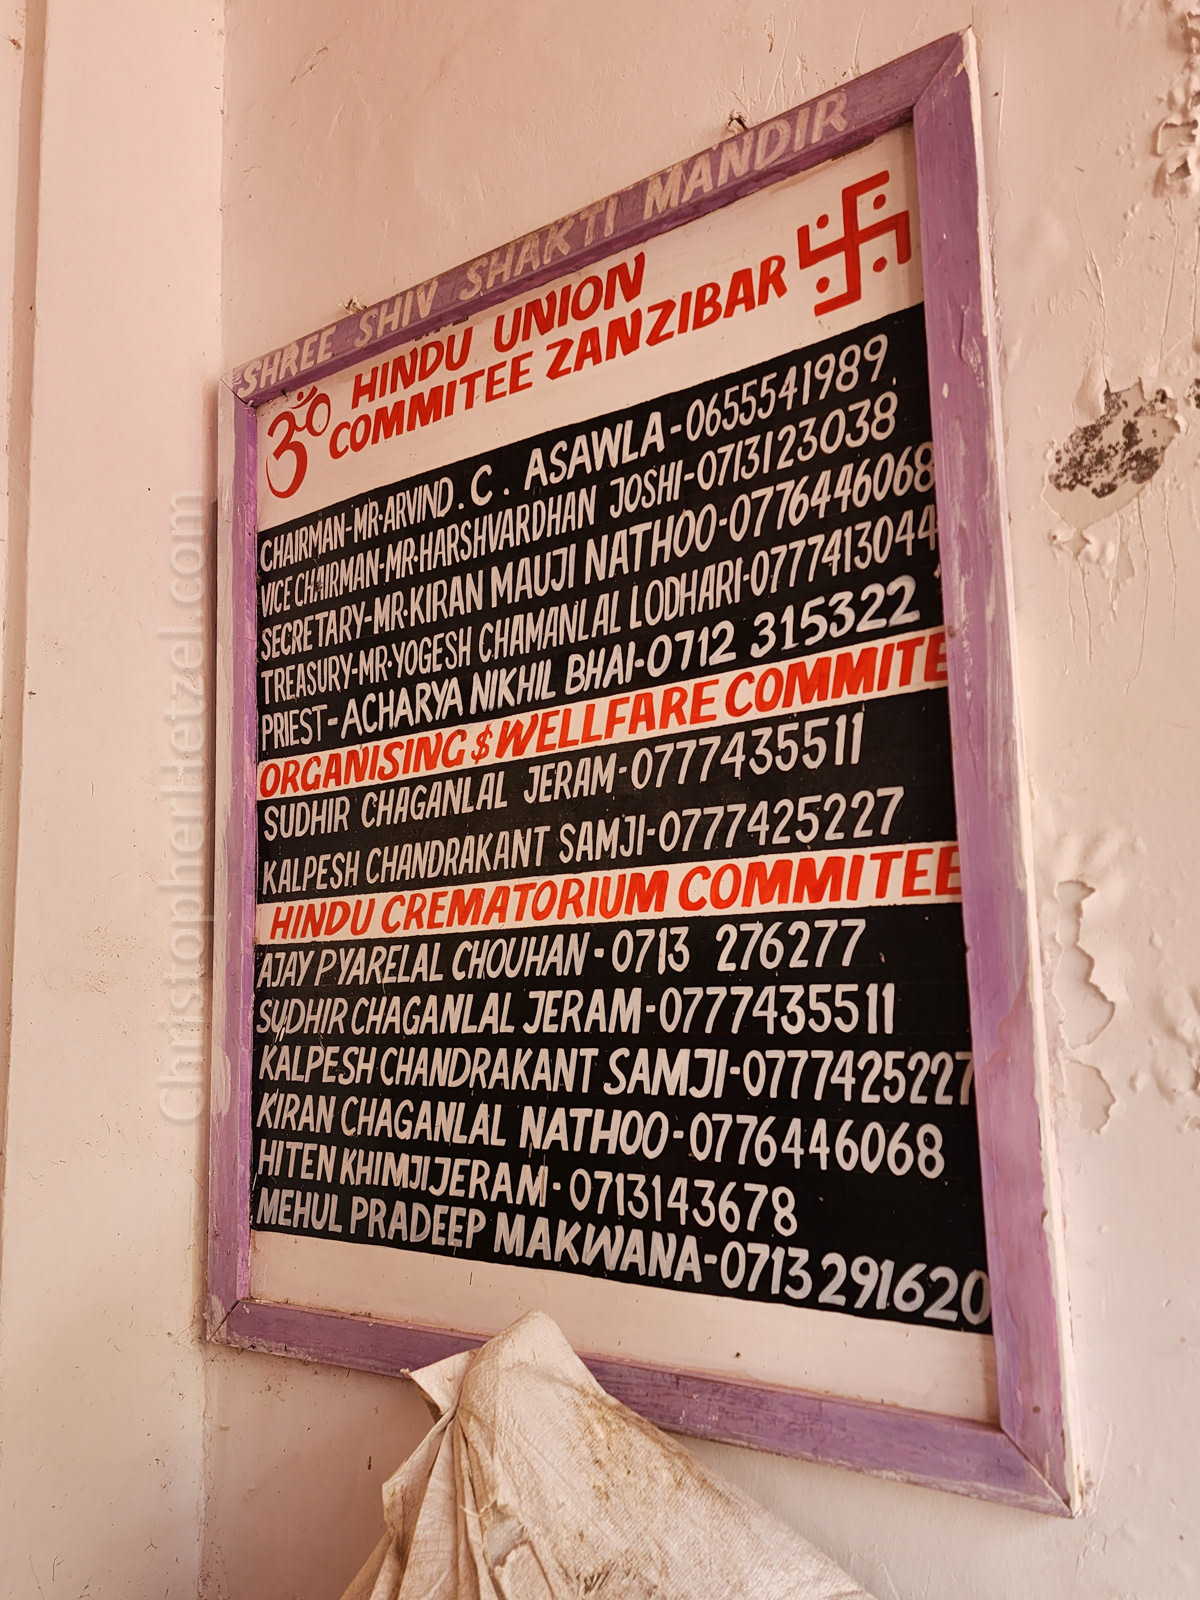 SHREE SHIV SHAKTI MANDIR
ॐ
HINDU UNION
COMMITEE ZANZIBAR
CHAIRMAN-MR.ARVIND.C. ASAWLA-0655541989
VICE CHAIRMAN-MR.HARSHVARDHAN JOSHI-0713123038
SECRETARY-MR.KIRAN MAUJI NATHOO-0776446068
TREASURY-MR.YOGESH CHAMANLAL LODHARI-0777413044
PRIEST-ACHARYA NIKHIL BHAI-0712 315322
ORGANISING $ WELLFARE COMMITE
SUDHIR CHAGANLAL JERAM-0777435511
KALPESH CHANDRAKANT SAMJI-0777425227
HINDU CREMATORIUM COMMITEE
AJAY PYARELAL CHOUHAN-0713 276277
SUDHIR CHAGANLAL JERAM-0777435511
KALPESH CHANDRAKANT SAMJI-0777425227
KIRAN CHAGANLAL NATHOO-0776446068
HITEN KHIMJI JERAM-0713143678
MEHUL PRADEEP MAKWANA-0713 291620
ChristopherHetzel.com